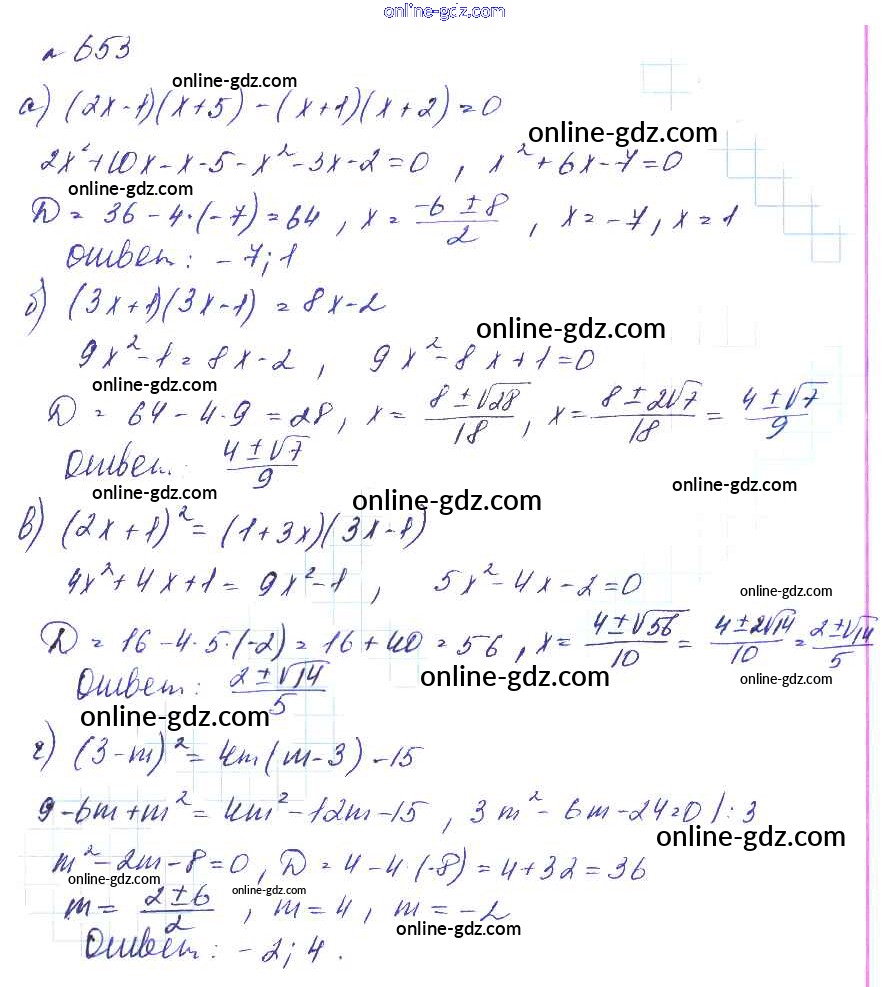 online-gdz.com
№ 653
online-gdz.com
а) (2x-1)(x+5) - (x+1)(x+2) = 0
online-gdz.com
2x²+10x-x-5-x²-3x-2=0, x²+6x-7=0
online-gdz.com
D = 36-4·(-7)=64, x = (-6±8)/2, x=-7, x=1
Ответ: -7; 1
б) (3x+1)(3x-1) = 8x-2
online-gdz.com
9x²-1=8x-2, 9x²-8x+1=0
online-gdz.com
D = 64-4·9=28, x = (8±√28)/18, x = (8±2√7)/18 = (4±√7)/9
Ответ: (4±√7)/9
online-gdz.com
online-gdz.com online-gdz.com
в) (2x+1)² = (1+3x)(3x-1)
4x²+4x+1 = 9x²-1, 5x²-4x-2=0
online-gdz.com
D = 16-4·5·(-2) = 16+40 = 56, x = (4±√56)/10 = (4±2√14)/10 = (2±√14)/5
Ответ: (2±√14)/5
online-gdz.com online-gdz.com
online-gdz.com
г) (3-m)² = 4m(m-3)-15
9-6m+m² = 4m²-12m-15, 3m²-6m-24=0 |:3
online-gdz.com
m²-2m-8=0, D = 4-4·(-8) = 4+32 = 36
online-gdz.com online-gdz.com
m = (2±6)/2, m=4, m=-2
online-gdz.com
Ответ: -2; 4.